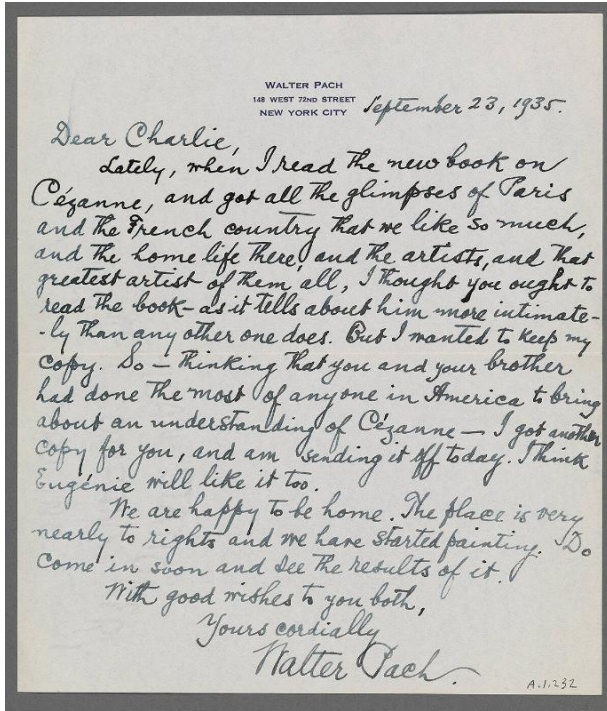 WALTER PACH
148 WEST 72ND STREET
NEW YORK CITY
September 23, 1935.
Dear Charlie,
Lately, when I read the new book on
Cézanne, and got all the glimpses of Paris
and the French country that we like so much,
and the home life there, and the artists, and that
greatest artist of them all, I thought you ought to
read the book – as it tells about him more intimate-
-ly than any other one does. But I wanted to keep my
copy. So – thinking that you and your brother
had done the most of anyone in America to bring
about an understanding of Cézanne – I got another
copy for you, and am sending it off today. I think
Eugénie will like it too.
We are happy to be home. The place is very
nearly to rights and we have started painting. Do
come in soon and see the results of it.
With good wishes to you both,
Yours cordially
Walter Pach.
A.1.232